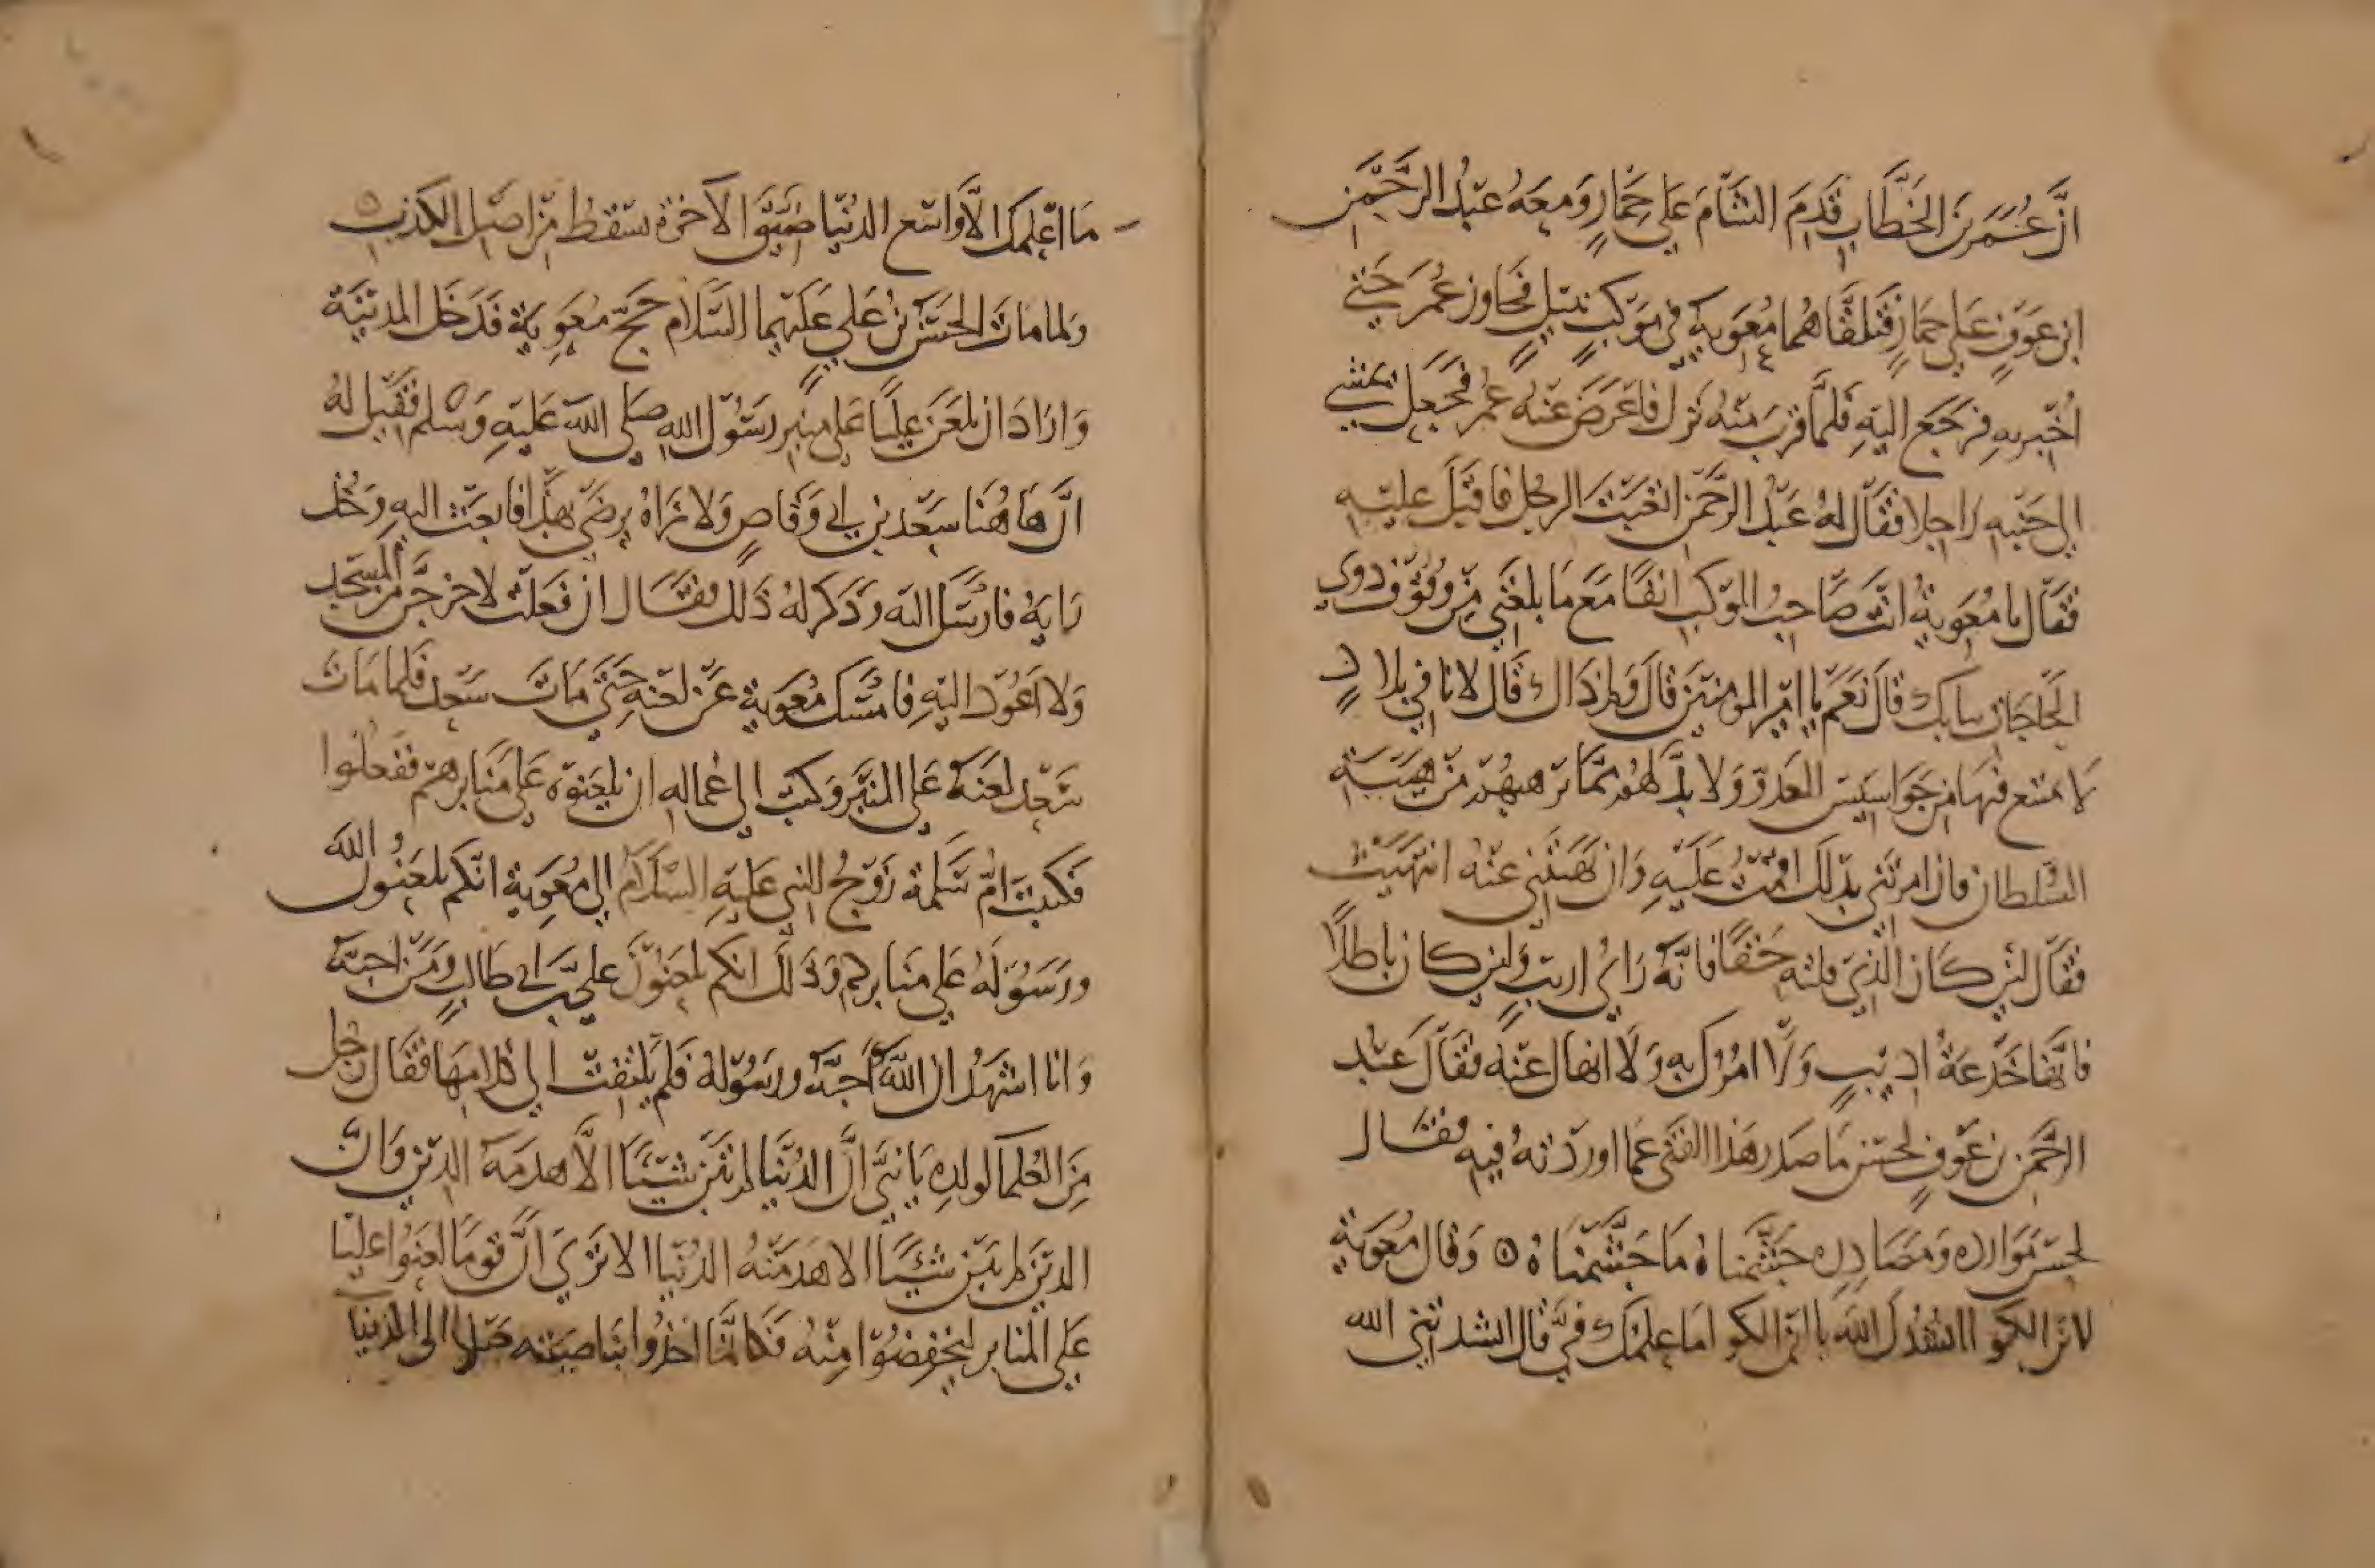 انّ عُمَر بنَ الخَطّاب قَدِمَ الشّامَ عَلى حِمَارٍ وَمعَهُ عَبْدُ الرَّحْمٰن
ابن عَوفٍ عَلى حِمَارٍ فتلقّاهُما مُعَويه في مَوكبٍ نبيلٍ فجاوز عُمَر حَتى
أُخْبر به فرَجَع اليهِ فلمّا قربَ منهُ نزل فاَعرَضَ عَنْهُ عُمَر فجَعَل يمشي
إلى جَنْبِه رَاجلا فقَال لهُ عَبْدُ الرَّحْمٰن اتعَبْتَ الرجُل فاقبَلَ عليْهِ
فقَال يا مُعَوية انتَ صَاحِبُ المَوكب انفًا مَعَ مَا بلغَني مِنْ وقوف ذوى
الحَاجات ببابكَ قالَ نَعَم يا امير المومنينَ قالَ ولِمَ ذاك قال لانا في بلادٍ
لا نمتنع فيهَا من جَواسيس العَدوّ وَلا بدّ لهُم ممّا يرهبهُم مِنْ هيبَة
السُّلطان فان امرتَني بذلكَ اقمتُ عَليْهِ وَان نهَيتَني عنْهُ انتهَيْتُ
فقَال لئِن كَان الّذي قلته حَقًا فانّهُ رَاي اريبٍ ولئن كان باطلًا
فانّها خَدعَةُ اديبٍ وَلا امُرُك بِهِ وَلا انهاك عَنْهُ فقالَ عَبْد
الرَّحْمٰن بن عَوفٍ لحسْن مَا صَدر هَذا الفَتى عَما اوردْتهُ فيهِ فقَال
لحسْن مَوارده وَمَصَادِره جَشّمناهُ مَا جَشّمناهُ ٥ وَقال مُعَوية
لابن الكوا انشدُكَ اللهَ يا ابن الكو امَا عِلمُكَ فيّ قال انشدتني الله
مَا اعْلمكَ الاّ واسَع الدُنيا ضيّق الاخرَة ٥
وَلما مات الحَسَن بْن عَلي عَليهما السَلام حَجّ مُعَوية فدَخَل المدينَة
وَارَادَ ان يلعَن عليًا عَلى منبر رسُول الله صَلى الله عَليْهِ وَسَلم فقيل لهُ
انّ هَاهُنا سَعد بن ابي وَقاصٍ وَلا نرَاهُ يرضَى بهَذا فابعَث اليهِ وَخُذ
رَايهُ فارسَل اليه وَذكر لهُ ذَلك فقَال ان فعَلت لاخرجَن مِن المسْجد
وَلا اَعُود اليْهِ فامسَك مُعَوية عَن لعنِه حَتى مَاتَ سَعد فلما مَات
سَعد لعَنَهُ عَلى المنبَر وَكتب الى عُماله ان يلعَنوه عَلى منَابرهم ففعَلوا
فكتبَت امّ سَلمة زَوجُ النبي عَليهِ السَلام الى مُعَوية انّكم تلعَنُون اللهَ
ورَسُولهُ عَلى مَنابركم وَذَلك انكم تلعَنُونَ عَلي بن ابي طالبٍ وَمَن احبّهُ
وَانا اشهَدُ ان اللهَ احَبّهُ ورسُولهُ فلم يَلتفت الى كلامهَا فقَال رجُل
مِنَ العُلما لولدِه يَا بنيّ انّ الدُنيا لم تبْن شيْئًا الاّ هدمَهُ الدّين وَانّ
الدّين لم يبن شيْئًا الا هَدمَتْهُ الدُنيا الا تَرى انّ قومًا لعَنوا عليّا
عَلى المنابر ليخفضُوا مِنْهُ فكانّما اخذوا بناصيَته